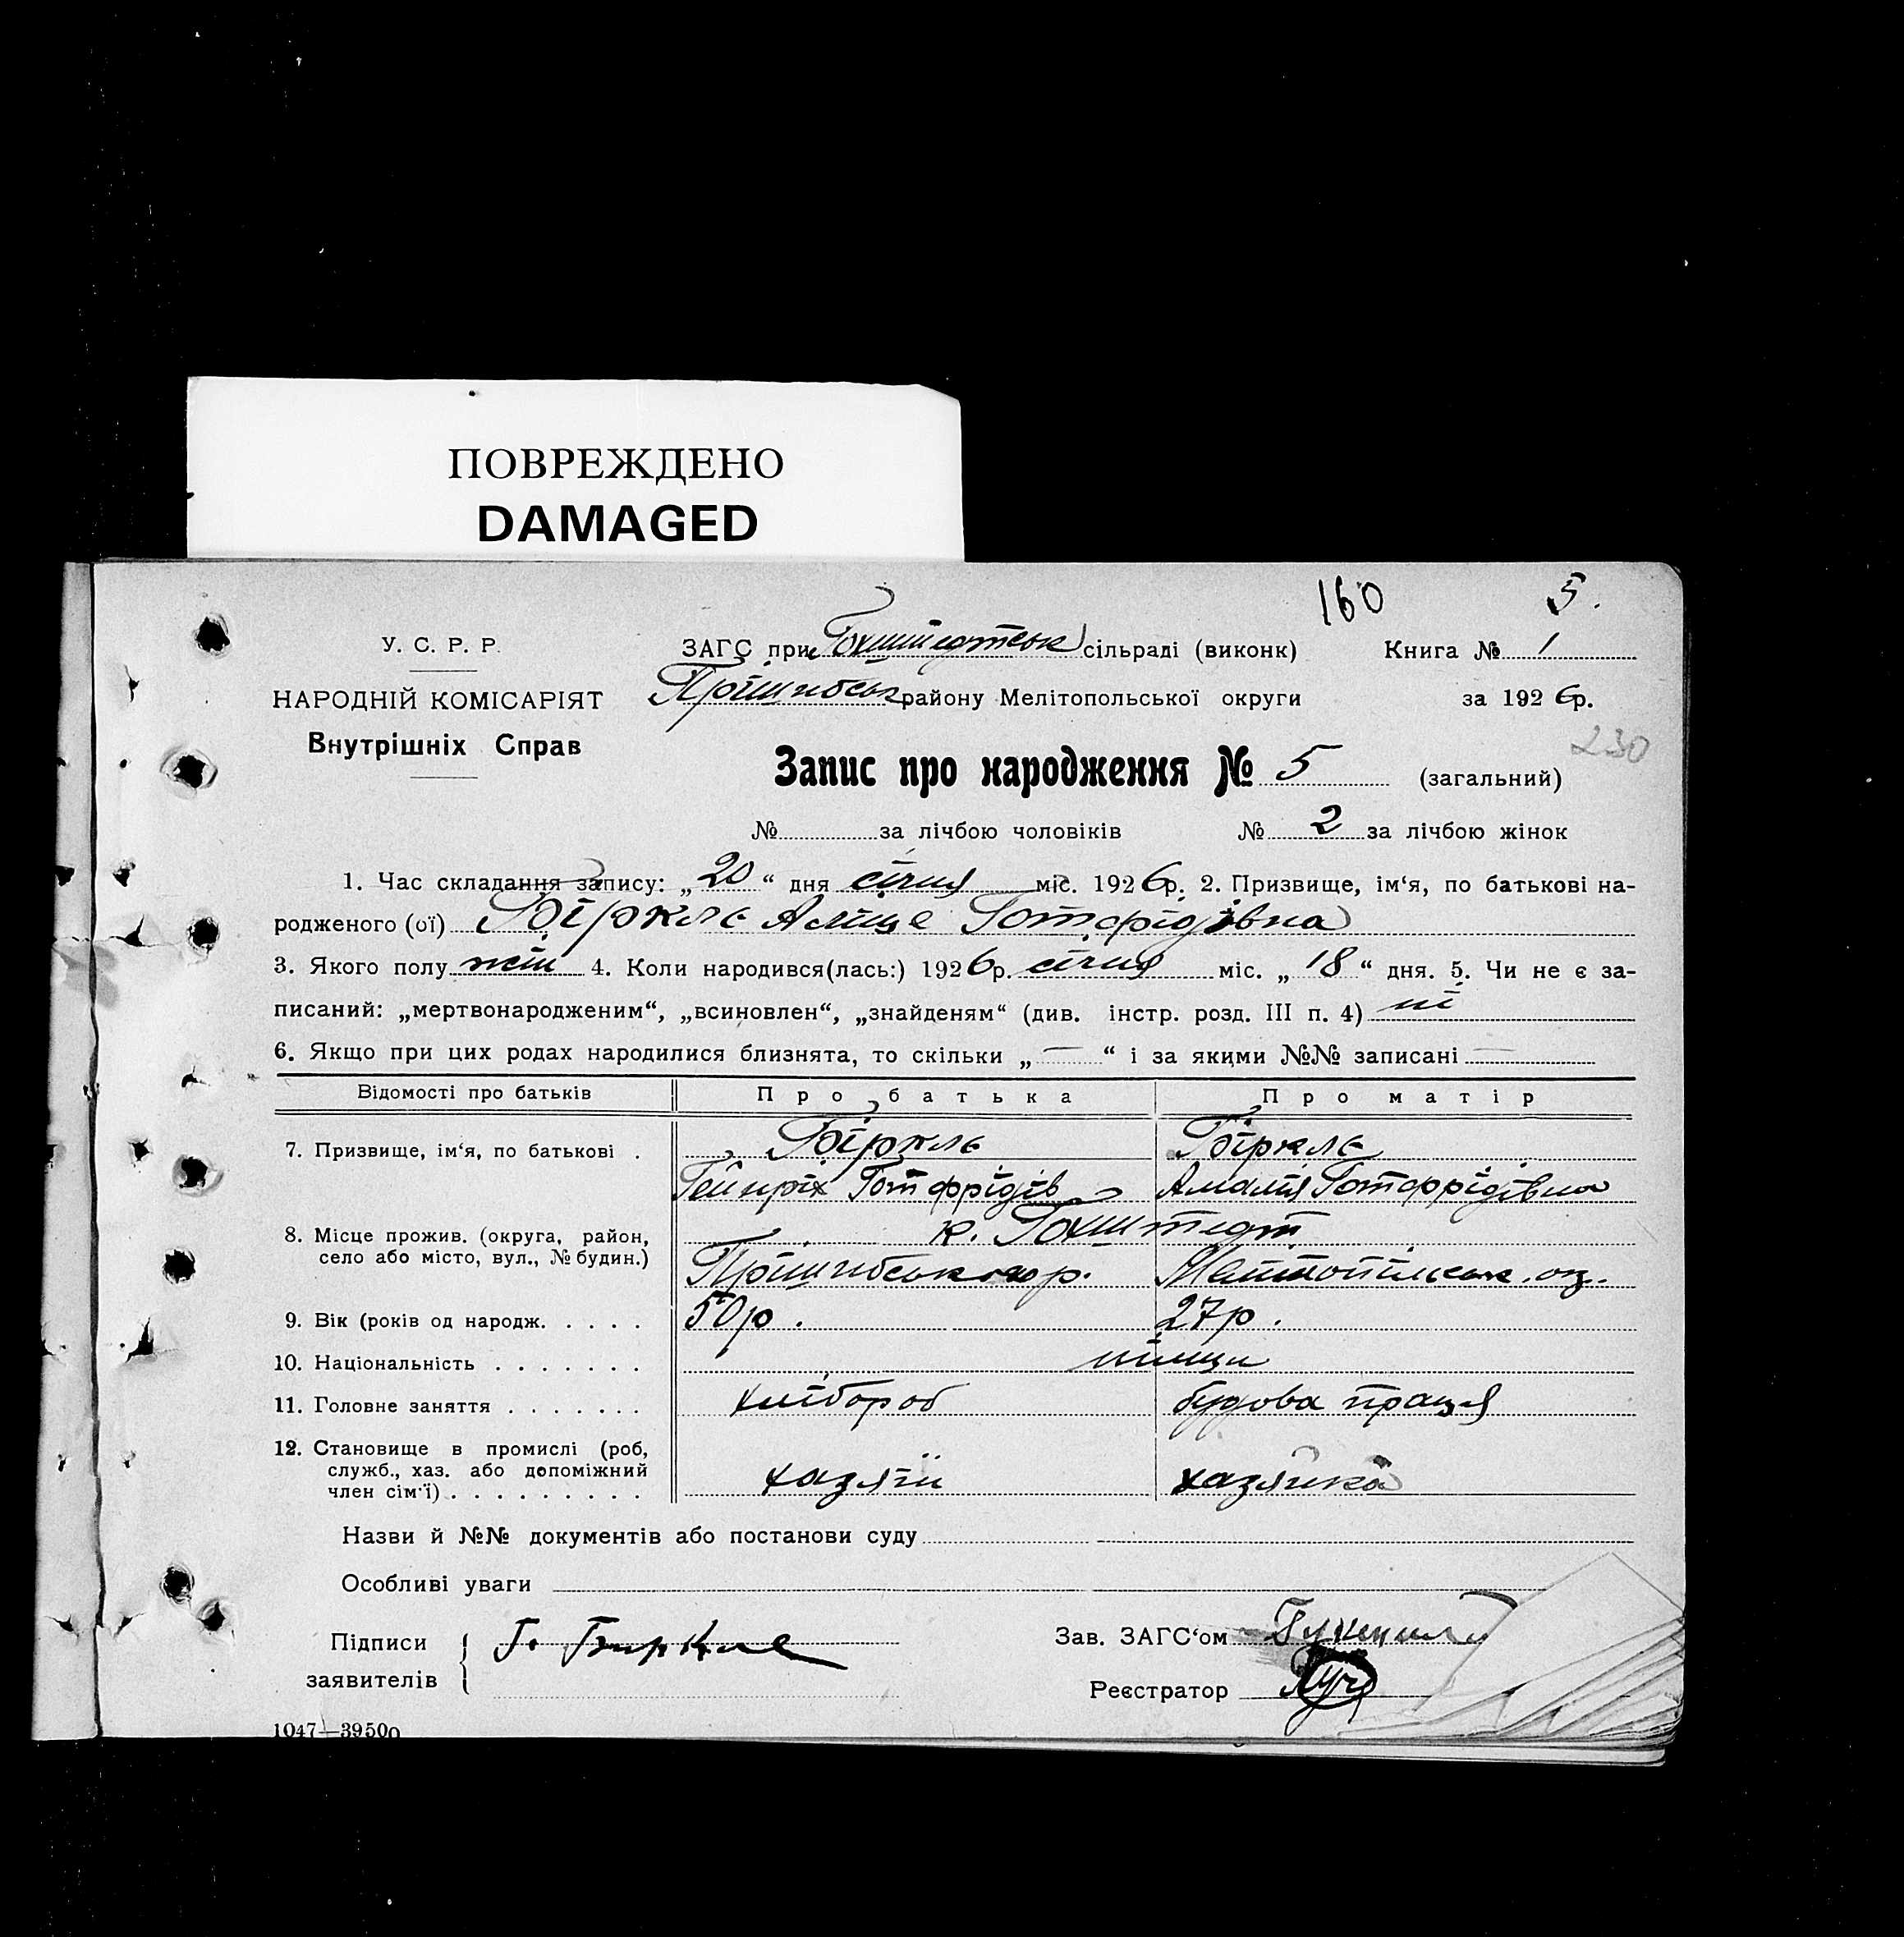 ПОВРЕЖДЕНО
DAMAGED
160 5.
У. С. Р. Р.
ЗАГС при Гохштедтськ сільраді (виконк) Книга № 1
НАРОДНІЙ КОМІСАРІЯТ
Прішибськ району Мелітопольської округи за 1926 р.
Внутрішніх Справ
230
Запис про народження № 5 (загальний)
№ за лічбою чоловіків № 2 за лічбою жінок
1. Час складання запису: „20“ дня січня міс. 1926 р. 2. Призвище, ім‘я, по батькові на-
родженого (ої) Біркле Аліце Готфрідівна
3. Якого полу жін 4. Коли народився(лась:) 1926 р. січня міс. „18“ дня. 5. Чи не є за-
писаний: „мертвонародженим“, „всиновлен“, „знайденям“ (див. інстр. розд. III п. 4) ні
6. Якщо при цих родах народилися близнята, то скільки „—“ і за якими №№ записані —
Відомості про батьків Про батька Про матір
7. Призвище, ім‘я, по батькові . Біркле Біркле
Гейнріх Готфрідів Амалія Готфрідівна
8. Місце прожив. (округа, район, к. Гохштедт
село або місто, вул., № будин.) Прішибського р. ок.
9. Вік (років од народж. . . . . 50 р. 27 р.
10. Національність . . . . . . . німци
11. Головне заняття . . . . . . . хлібороб праця
12. Становище в промислі (роб,
служб., хаз. або допоміжний хазяїн хазяйка
член сім‘ї) . . . . . . . . .
Назви й №№ документів або постанови суду
Особливі уваги
Підписи
заявителів Г. Биркле
Зав. ЗАГС‘ом
Реєстратор
1047—39500